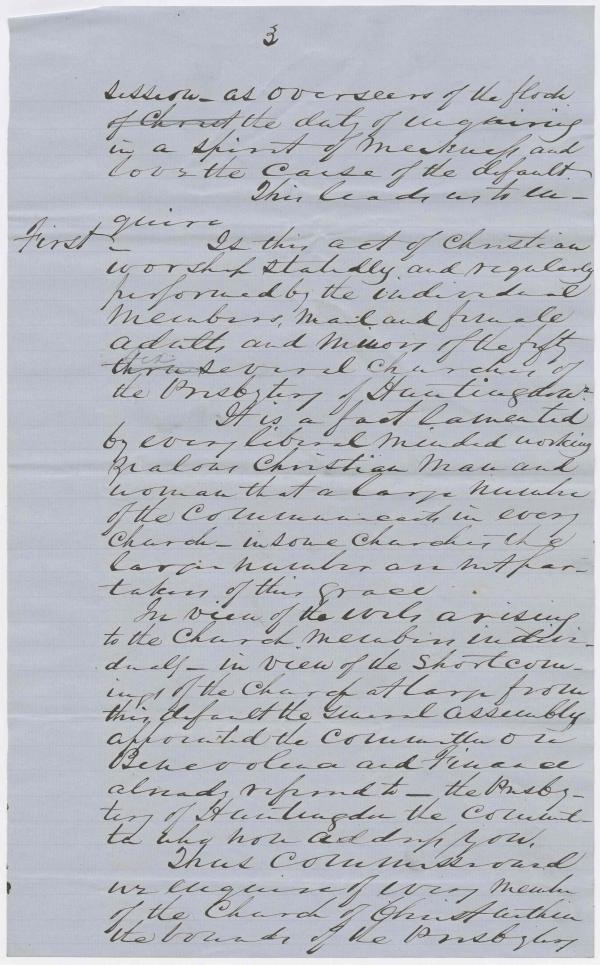 3
session - as overseers of the flock
of Christ the duty of inquiring
in a spirit of meekness and
love the cause of the default
This leads us to in-
quire
First - Is this act of Christian
worship statedly and regularly
performed by the individual
members, male and female
adults and minors of the fifty
three several churches of
the Presbytery of Huntingdon?
It is a fact lamented
by every liberal minded working
zealous Christian man and
woman that a large number
of the communicants in every
church - in some churches the
larger number are not par-
takers of this grace
In view of the evils arising
to the church members indivi-
dually - in view of the short com-
ings of the Church at large from
this default the General Assembly
appointed the Committee on
Benevolence and Finance
already referred to - the Presby-
tery of Huntingdon the Commit-
tee who now address you.
Thus Commissioned
we enquire of every member
of the Church of Christ within
the bounds of the Presbytery